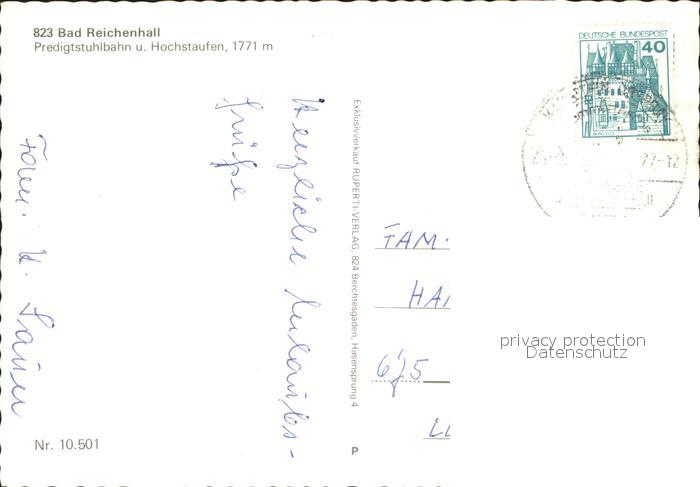 823 Bad Reichenhall
Predigtstuhlbahn u. Hochstaufen, 1771 m
DEUTSCHE BUNDESPOST
40
BURG ELTZ
77-12
Herzliche Urlaubs-
grüße
Fam. H. Sauer
Exklusivverkauf RUPERTI-VERLAG, 824 Berchtesgaden, Hasensprung 4
FAM.
HA
675
privacy protection
Datenschutz
Nr. 10.501
P